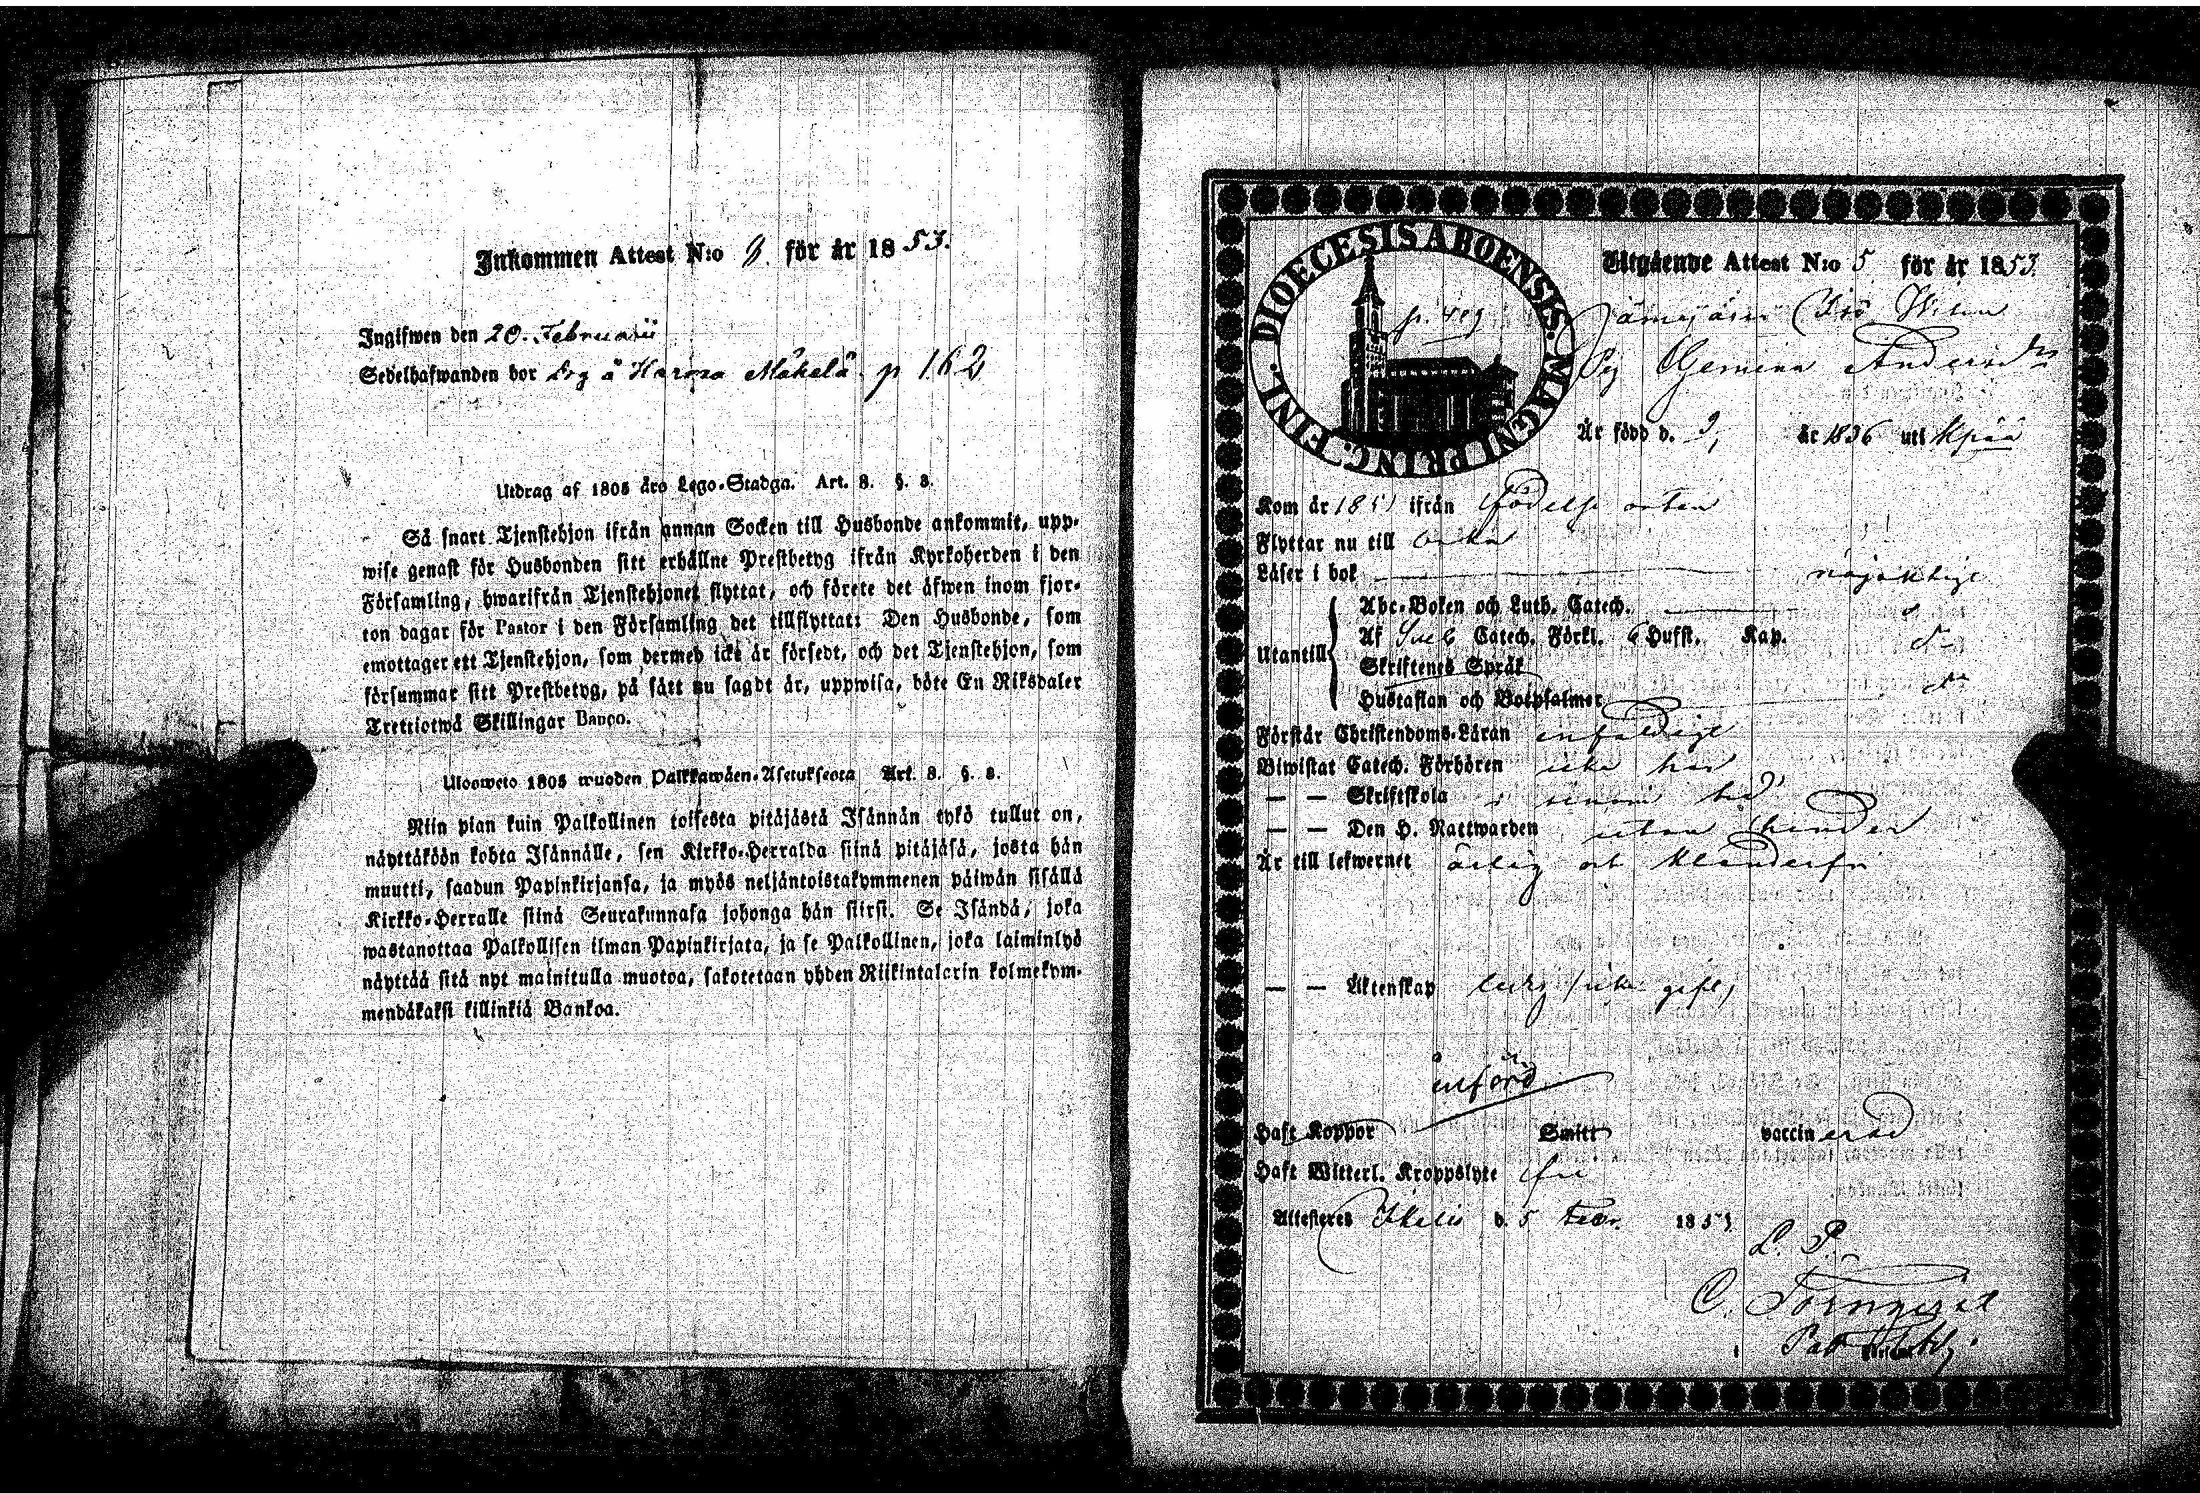 Inkommen Attest N:o 9. för år 1853.
Ingifwen den 20. Februarii
Sedelhafwanden bor Drg å Harma Mäkelä p 162
Utdrag af 1805 års Lego-Stadga. Art. 3. §. 3.
Så snart Tjenstehjon ifrån annan Socken till Husbonde ankommit, upp-
wise genast för Husbonden sitt erhållne Prestbetyg ifrån Kyrkoherden i den
Församling, hwarifrån Tjenstehjonet flyttat, och förete det äfwen inom fjor-
ton dagar för Pastor i den Församling det tillflyttat: Den Husbonde, som
emottager ett Tjenstehjon, som dermed icke är försedt, och det Tjenstehjon, som
försummar sitt Prestbetyg, på sätt nu sagdt är, uppwisa, böte En Riksdaler
Trettiotwå Skillingar Banco.
Ulosweto 1805 wuoden Palkkawäen-Asetuksesta Art. 3. §. 3.
Niin pian kuin Palkollinen toisesta pitäjästä Isännän tykö tullut on,
näyttäköön kohta Isännälle, sen Kirkko-Herralda siinä pitäjäsä, josta hän
muutti, saadun Papinkirjansa, ja myös neljäntoistakymmenen päiwän sisällä
Kirkko-Herralle siinä Seurakunnasa johonga hän siirsi. Se Isändä, joka
wastanottaa Palkollisen ilman Papinkirjata, ja se Palkollinen, joka laiminlyö
näyttää sitä nyt mainitulla muotoa, sakotetaan yhden Riikintalarin kolmekym-
mendäkaksi killinkiä Bankoa.
DIOECESIS ABOENSIS. MAGNI PRINC. FINL.
Utgående Attest N:o 5 för år 1853.
Pig Andersdr
Är född d. 9, år 1836 uti Kpää
Kom år 1851 ifrån födelse orten
Flyttar nu till
Läser i bok nöjaktige
Abc-Boken och Luth. Catech.
Utantill Af Sveb Catech. Förkl. 6 Hufst. Kap.
Skriftenes Språk
Hustaflan och Botpsalmer
Förstår Christendoms-Läran enfaldigt
Biwistat Catech. Förhören
— — Skriftskola
— — Den H. Nattwarden utan hinder
Är till lefwernet ärlig och klanderfri
— — Äktenskap ledig icke gift,
införd
Haft Koppor Smitt vaccinerad
Haft Witterl. Kroppslyte fri
Attesteras d. 5 Febr. 1853